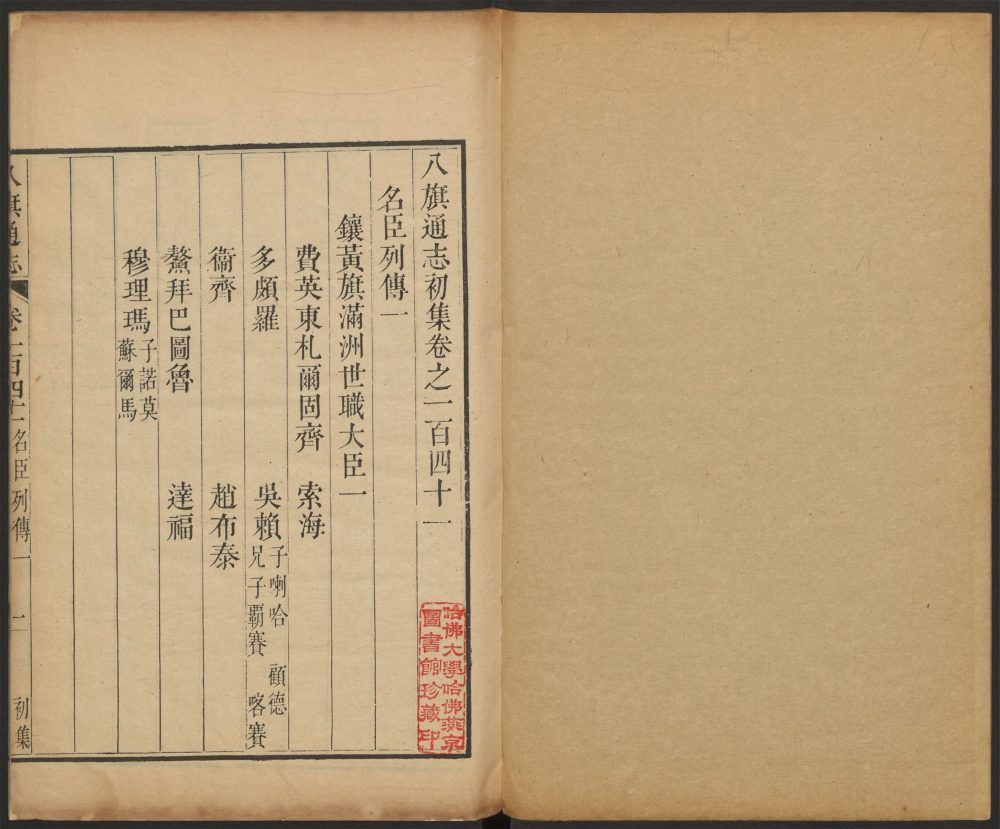 八旗通志初集卷之二百四十一
名臣列傳一
鑲黃旗滿洲世職大臣一
費英東札爾固齊 索海
多頗羅 吳賴 子喇哈 顧德
兄子覇賽 喀賽
衞齊 趙布泰
鰲拜巴圖魯 達福
穆理瑪 子諾莫
蘇爾馬
八旗通志 卷二百四十一 名臣列傳一 一 初集
哈佛大學哈佛燕京
圖書館珍藏印